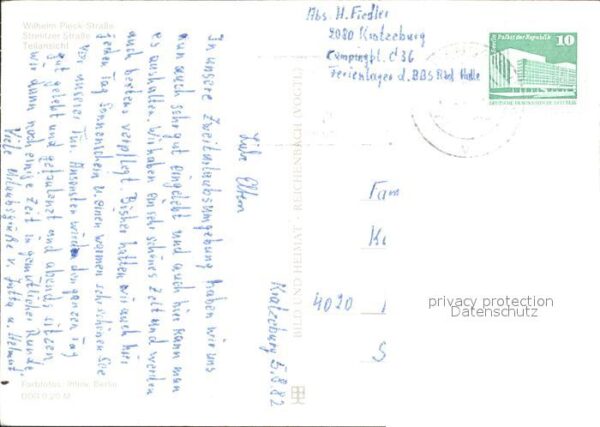 Wilhelm Pieck-Straße
Strelitzer Straße
Teilansicht
Abs. H. Fiedler
2080 Kratzeburg
Campingpl. C 36
Ferienlager d. BBS Halle
Palast der Republik
10
DEUTSCHE DEMOKRATISCHE REPUBLIK
Kratzeburg 5.8.82
Liebe Eltern
In unsere Zweiturlaubsumgebung haben wir uns
nun auch sehr gut eingelebt und auch hier kann man
es aushalten. Wir haben ein sehr schönes Zelt und werden
auch bestens verpflegt. Bisher hatten wir auch hier
jeden Tag Sonnenschein u. einen warmen sehr schönen See
vor unserer Tür. Ansonsten wird den ganzen Tag
gut gelebt und gefaulenzt und abends sitzen
wir dann noch einige Zeit in gemütlicher Runde.
Viele Urlaubsgrüße v. Jutta u. Helmut
BILD UND HEIMAT · REICHENBACH (VOGTL)
Fam
Ki
4020
S
privacy protection
Datenschutz
Farbfotos: Berlin
DDR 0,20 M